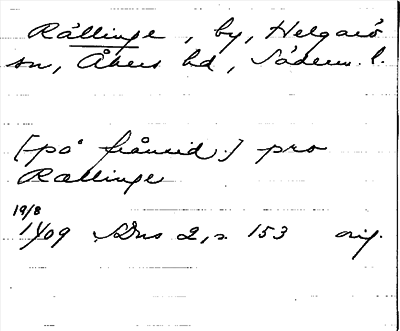 Rållinge, by, Helgarö
sn, Åkers hd, Söderm. l.
[på frånsid.] pro
Rællinge
19/8
1409 SDns 2, s. 153 orig.